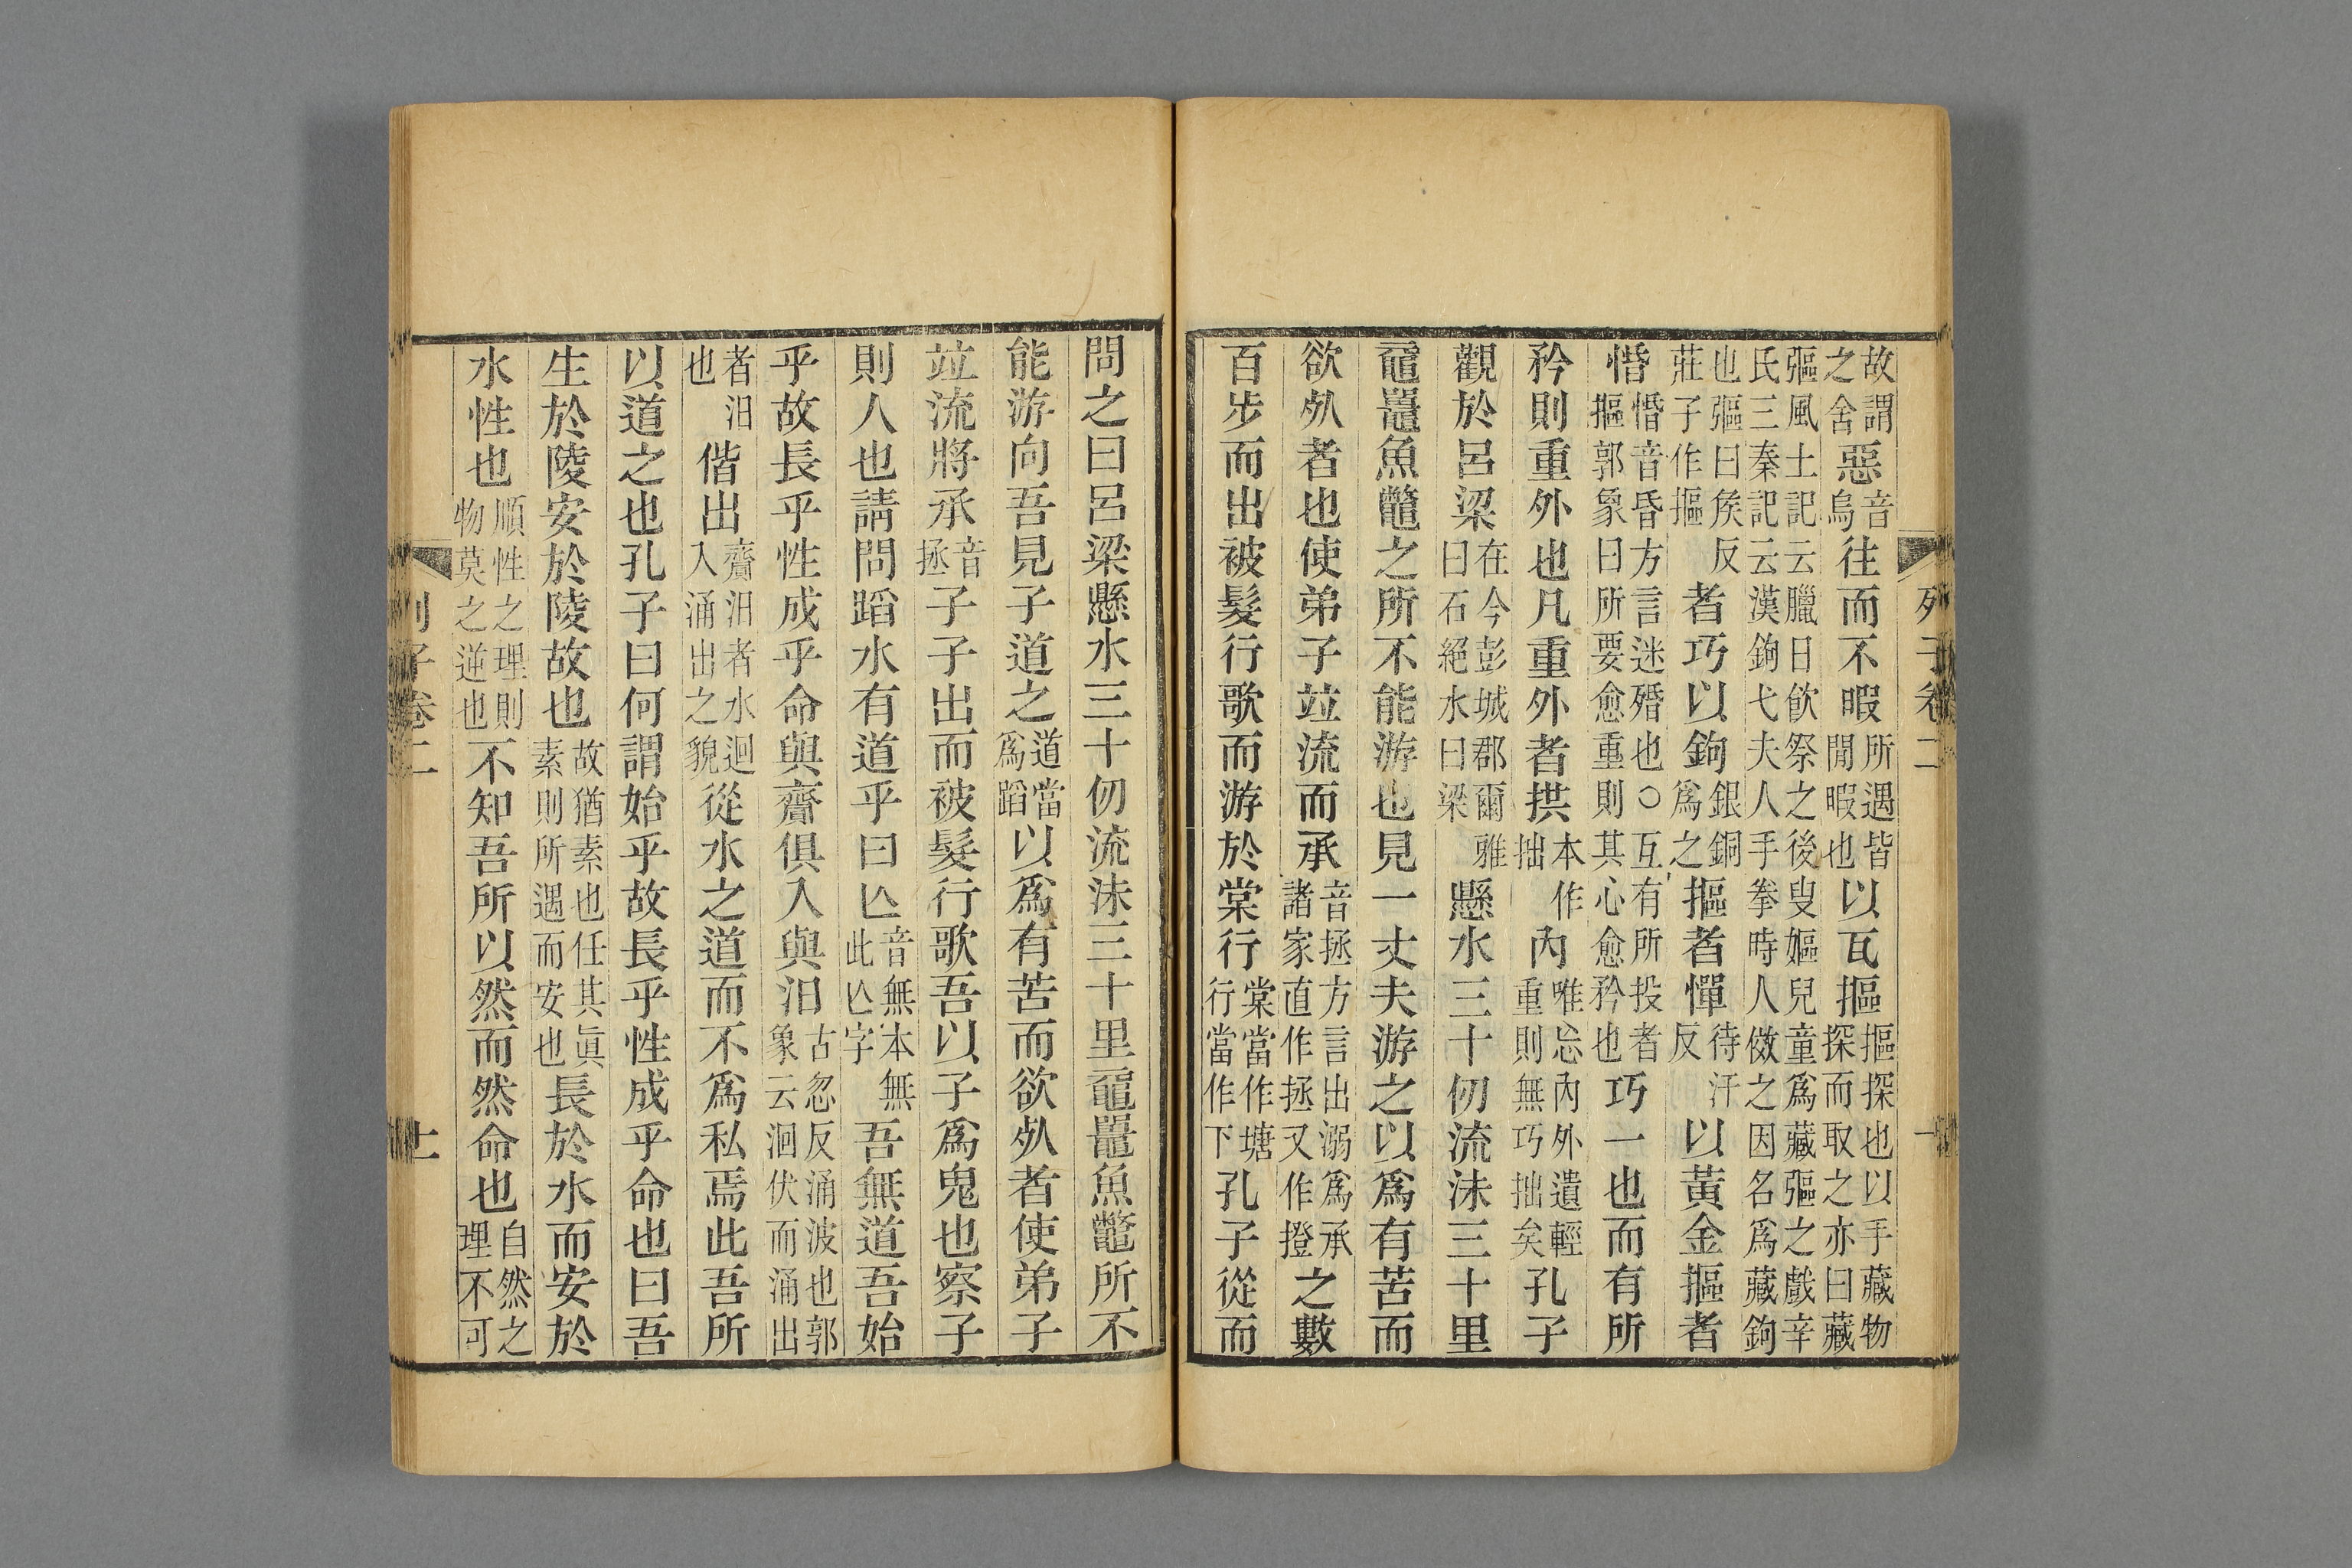 故謂之舍惡音烏往而不暇所遇皆閒暇也以瓦摳摳探也以手藏物探而取之亦曰藏
彄風土記云臘日飲祭之後叟嫗兒童爲藏彄之戲辛氏三秦記云漢鉤弋夫人手拳時人傚之因名爲藏鉤
也彄曰矦反莊子作摳者巧以鉤銀銅爲之摳者憚待汗反以黃金摳者
惛惛音昏方言迷殙也○互有所投者摳郭象曰所要愈重則其心愈矜也巧一也而有所
矜則重外也凡重外者拱本作拙內唯忘內外遺輕重則無巧拙矣孔子
觀於呂梁在今彭城郡爾雅曰石絕水曰梁懸水三十仞流沫三十里
黿鼉魚鼈之所不能游也見一丈夫游之以爲有苦而
欲𣦸者也使弟子竝流而承音拯方言出溺爲承諸家直作拯又作撜之數
百步而出被髮行歌而游於棠行棠當作塘行當作下孔子從而
問之曰呂梁懸水三十仞流沫三十里黿鼉魚鼈所不
能游向吾見子道之道當爲蹈以爲有苦而欲𣦸者使弟子
竝流將承音拯子子出而被髮行歌吾以子爲鬼也察子
則人也請問蹈水有道乎曰亾音無本無此亾字吾無道吾始
乎故長乎性成乎命與齎俱入與汩古忽反涌波也郭象云洄伏而涌出
者汩也偕出齎汩者水迴入涌出之貌從水之道而不爲私焉此吾所
以道之也孔子曰何謂始乎故長乎性成乎命也曰吾
生於陵安於陵故也故猶素也任其真素則所遇而安也長於水而安於
水性也順性之理則物莫之逆也不知吾所以然而然命也自然之理不可
列子卷二